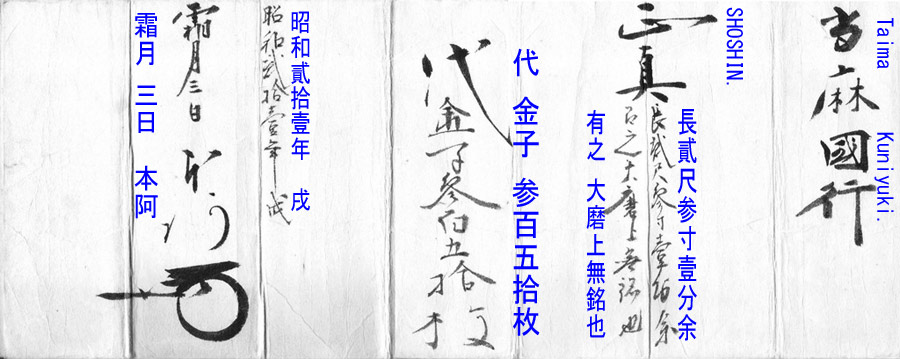 Taima Kuniyuki.
当麻國行
SHOSHIN.
正真
長貳尺参寸壹分余
長貳尺参寸壹分余
有之大磨上無銘也
有之 大磨上無銘也
代 金子 参百五拾枚
代金子参佰五拾枚
昭和貳拾壹年 戌
昭和貳拾壹年戌
霜月三日 本阿
霜月 三日 本阿